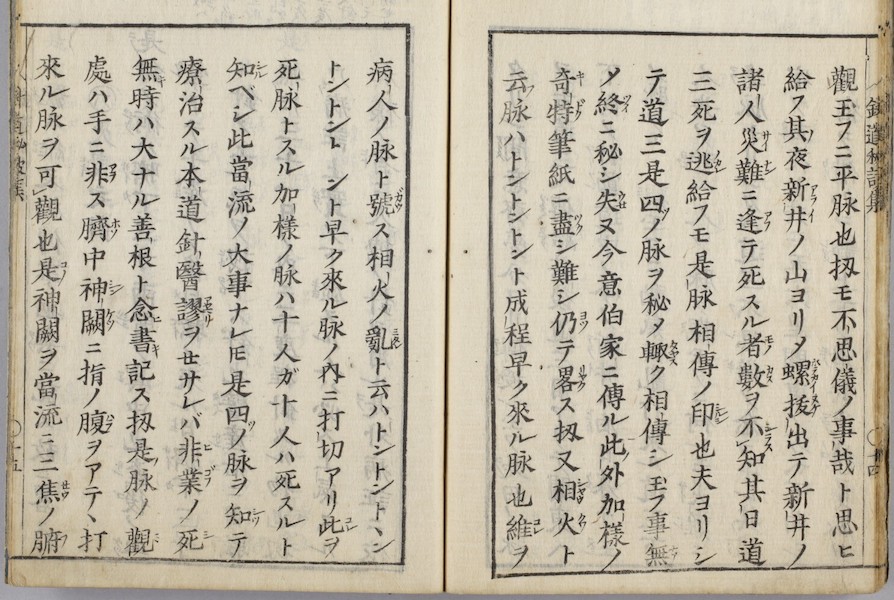 觀玉フニ平脉也扨モ不思儀ノ事哉ト思ヒ
給フ其夜新井ノ山ヨリ〆螺拔出テ新井ノ
諸人災難ニ逢テ死スル者數ヲ不知其日道
三死ヲ逃給フモ是脉相傳ノ印也夫ヨリシ
テ道三是四ツノ脉ヲ秘〆輙ク相傳シ玉フ事無
〆終ニ秘シ失又今意伯家ニ傳ル此外加樣ノ
奇特筆紙ニ盡シ難シ仍テ畧ス扨又相火ト
云脉ハトントントント成程早ク來ル脉也維ヲ
病人ノ脉ト號ス相火ノ亂ト云ハトントントヽン
トントント ント早ク來ル脉ノ內ニ打切アリ此ヲ
死脉トスル加樣ノ脉ハ十人ガ十人ハ死スルト
知ベシ此當流ノ大事ナレ𪜈是四ツノ脉ヲ知テ
療治スル本道針醫謬ヲ世サレバ非業ノ死
無時ハ大ナル善根ト念書記ス扨是脉ノ觀
處ハ手ニ非ス臍中神闕ニ指ノ腹ヲアテヽ打
來ル脉ヲ可觀也是神闕ヲ當流ニ三焦ノ腑